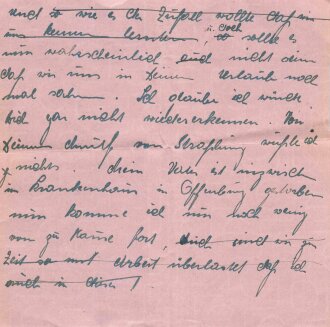 und so wie es der Zufall wollte daß wir
uns kennen lernten, u. doch so sollte es
nun wahrscheinlich auch nicht sein
daß wir uns in Deinem Urlaub noch
mal sahen. Ich glaube ich würde
Dich gar nicht wiedererkennen. Von
Deinem von Straßburg wußte ich
nichts. Mein Vater ist inzwischen
im Krankenhaus in Offenburg gestorben
nun komme ich nur noch wenig
von zu Hause fort, und zur
Zeit so mit Arbeit überlastet daß ich
mich in